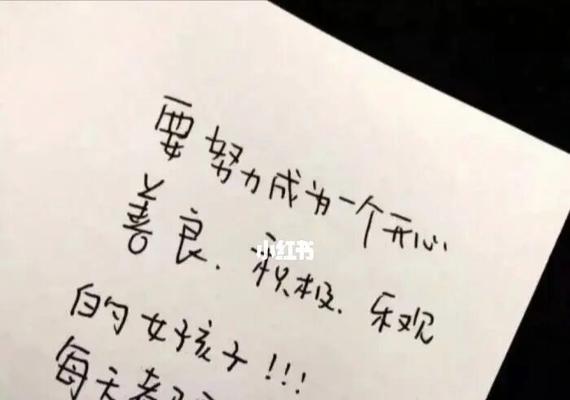 要努力成为一个开心
善良、积极、乐观
的女孩子!!!
每天都
小红书